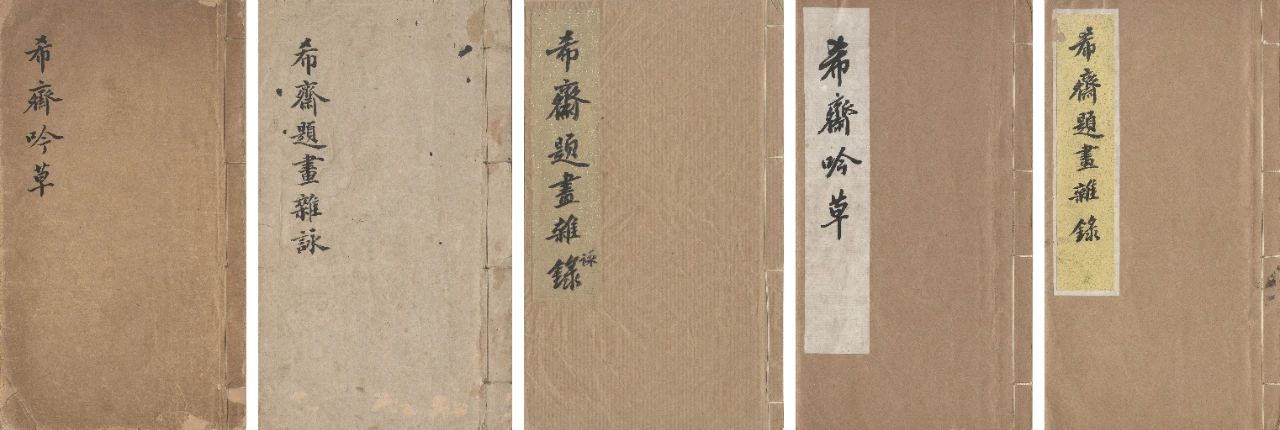 希齋吟草
希齋題畫雜詠
希齋題畫雜錄
詠
希齋吟草
希齋題畫雜錄